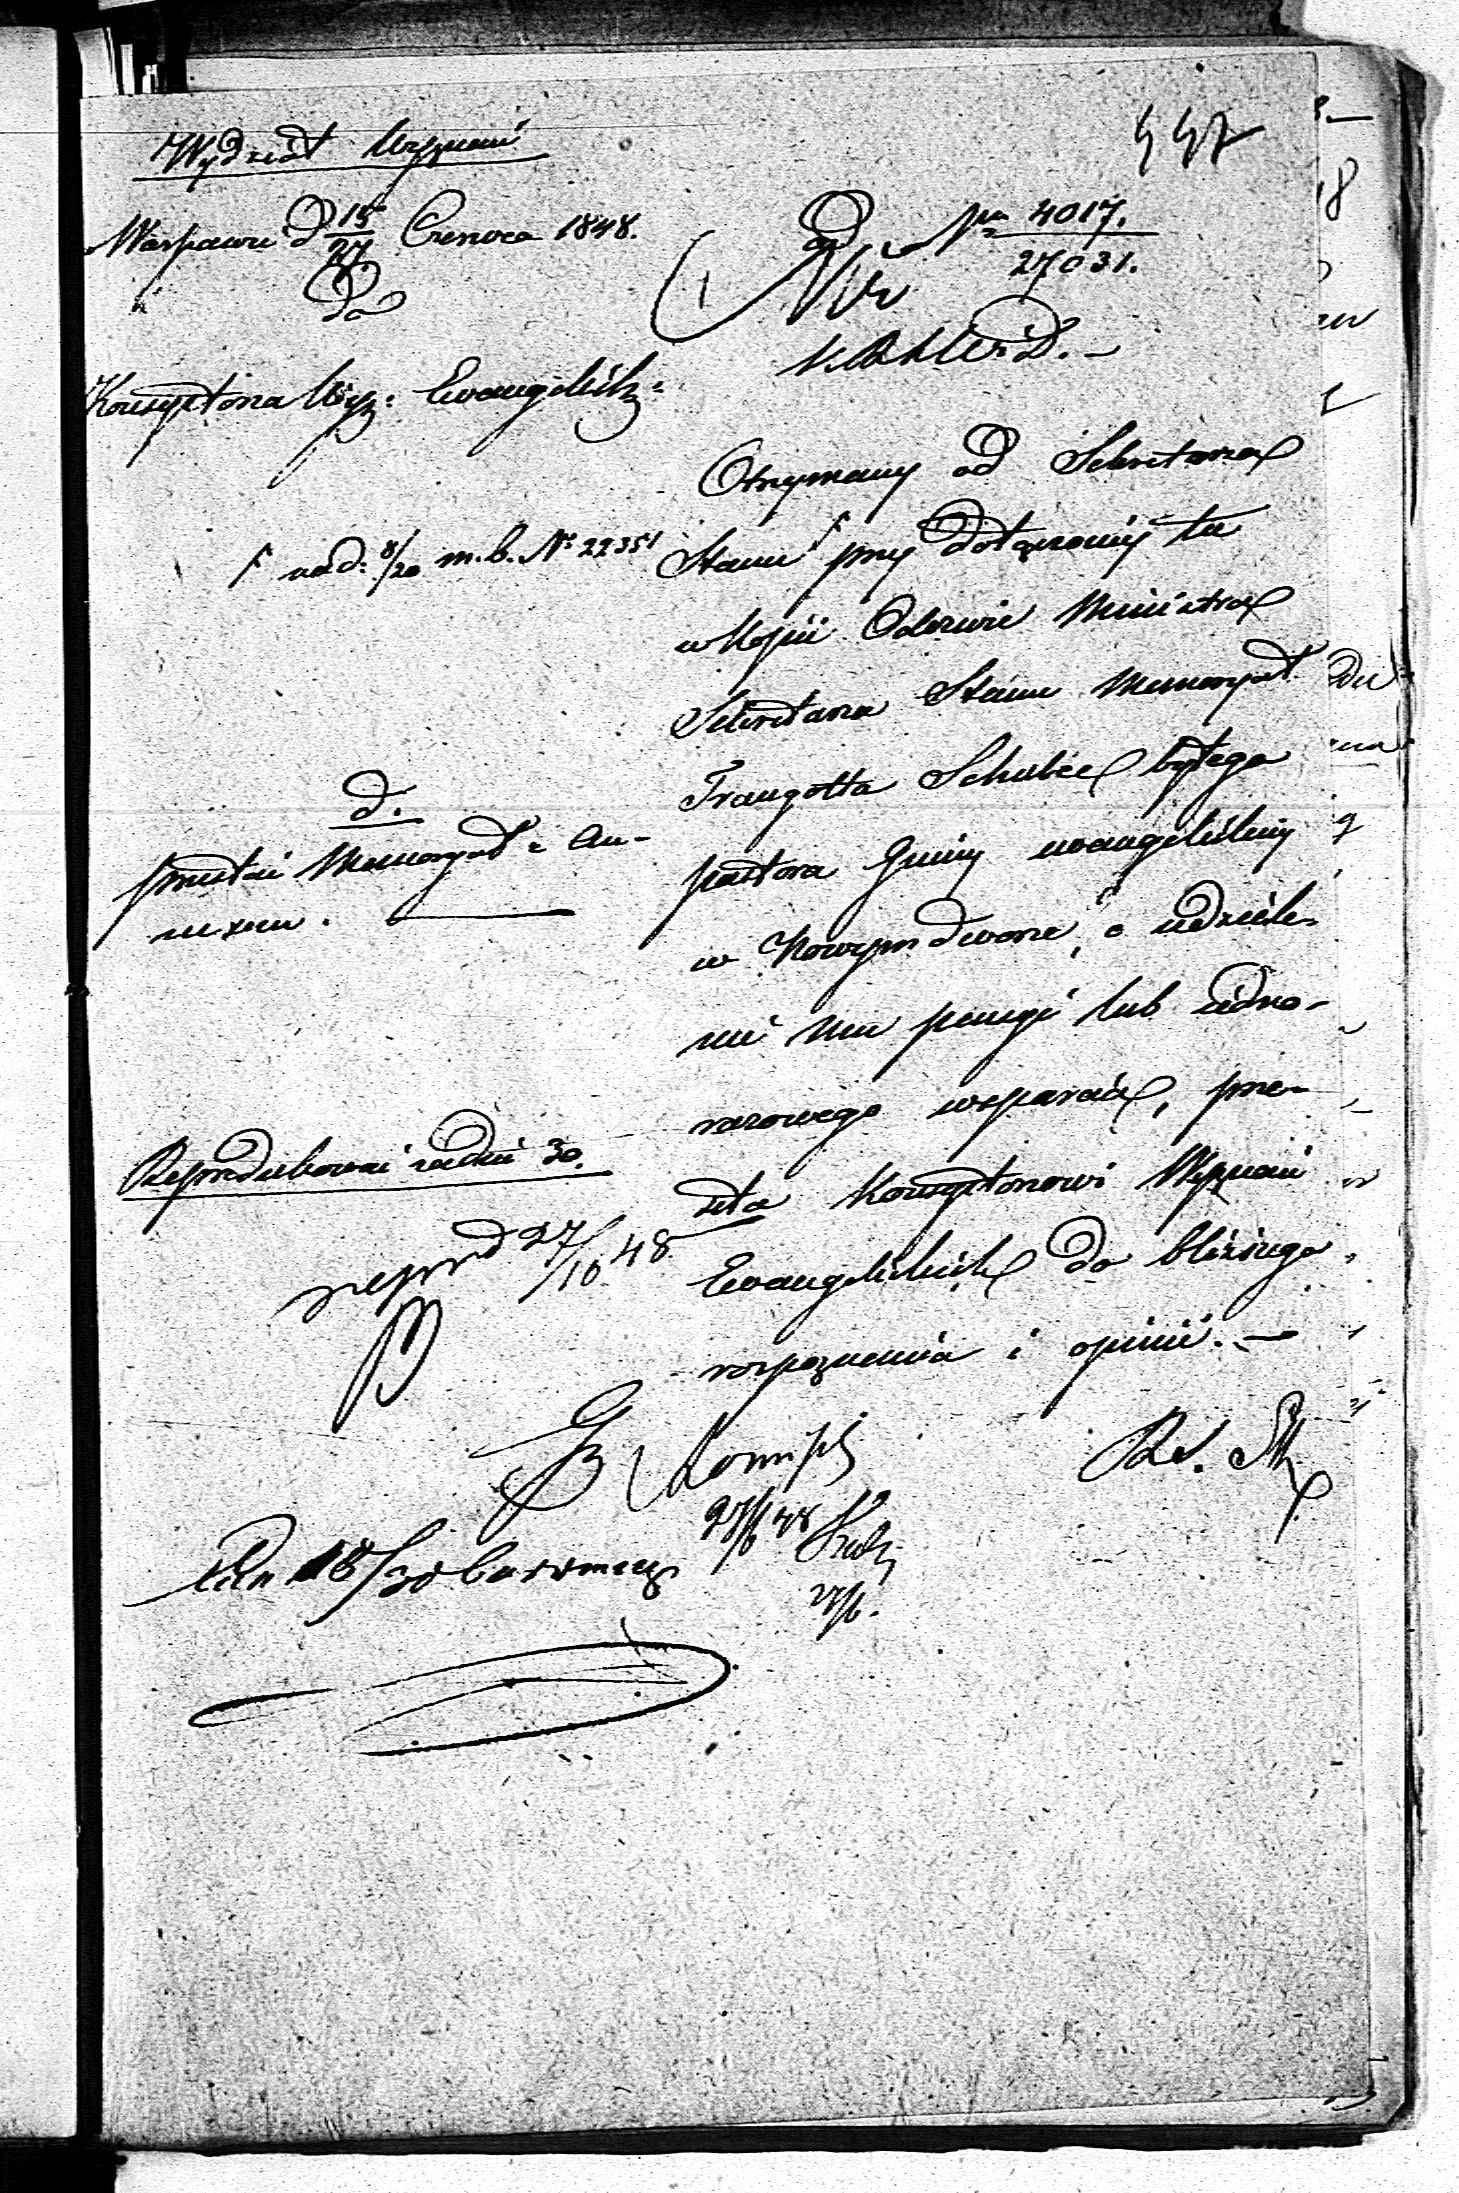 Wydział Wyznań
Warszawa d 15/27 Czerwca 1848.
Do
Konsystorza Wyz: Ewangelick:
447
ad Nra 4017.
27031.
K.R.S.W.i D. –
Otrzymany od Sekretarza
Stanu przy dołączonéy tu
w kopii Odezwie Ministra
Sekretarza Stanu Memoryał
Traugotta Schulce byłego
pastora Gminy ewangelickiéy
w Nowymdworze, o udziele-
nie mu pensyi lub iedno-
razowego wsparcia, prze-
syła Konsystorzowi Wyznań
Ewangelickich do bliższego
rozpoznania i opinii. –
z d. 8/20 m.b. N° 22351
d.
przesłać Memoryał z an-
nexem.
Reprodukować za dni 30.
repr d 27/10 48
27/6 48
27/6.
18/30